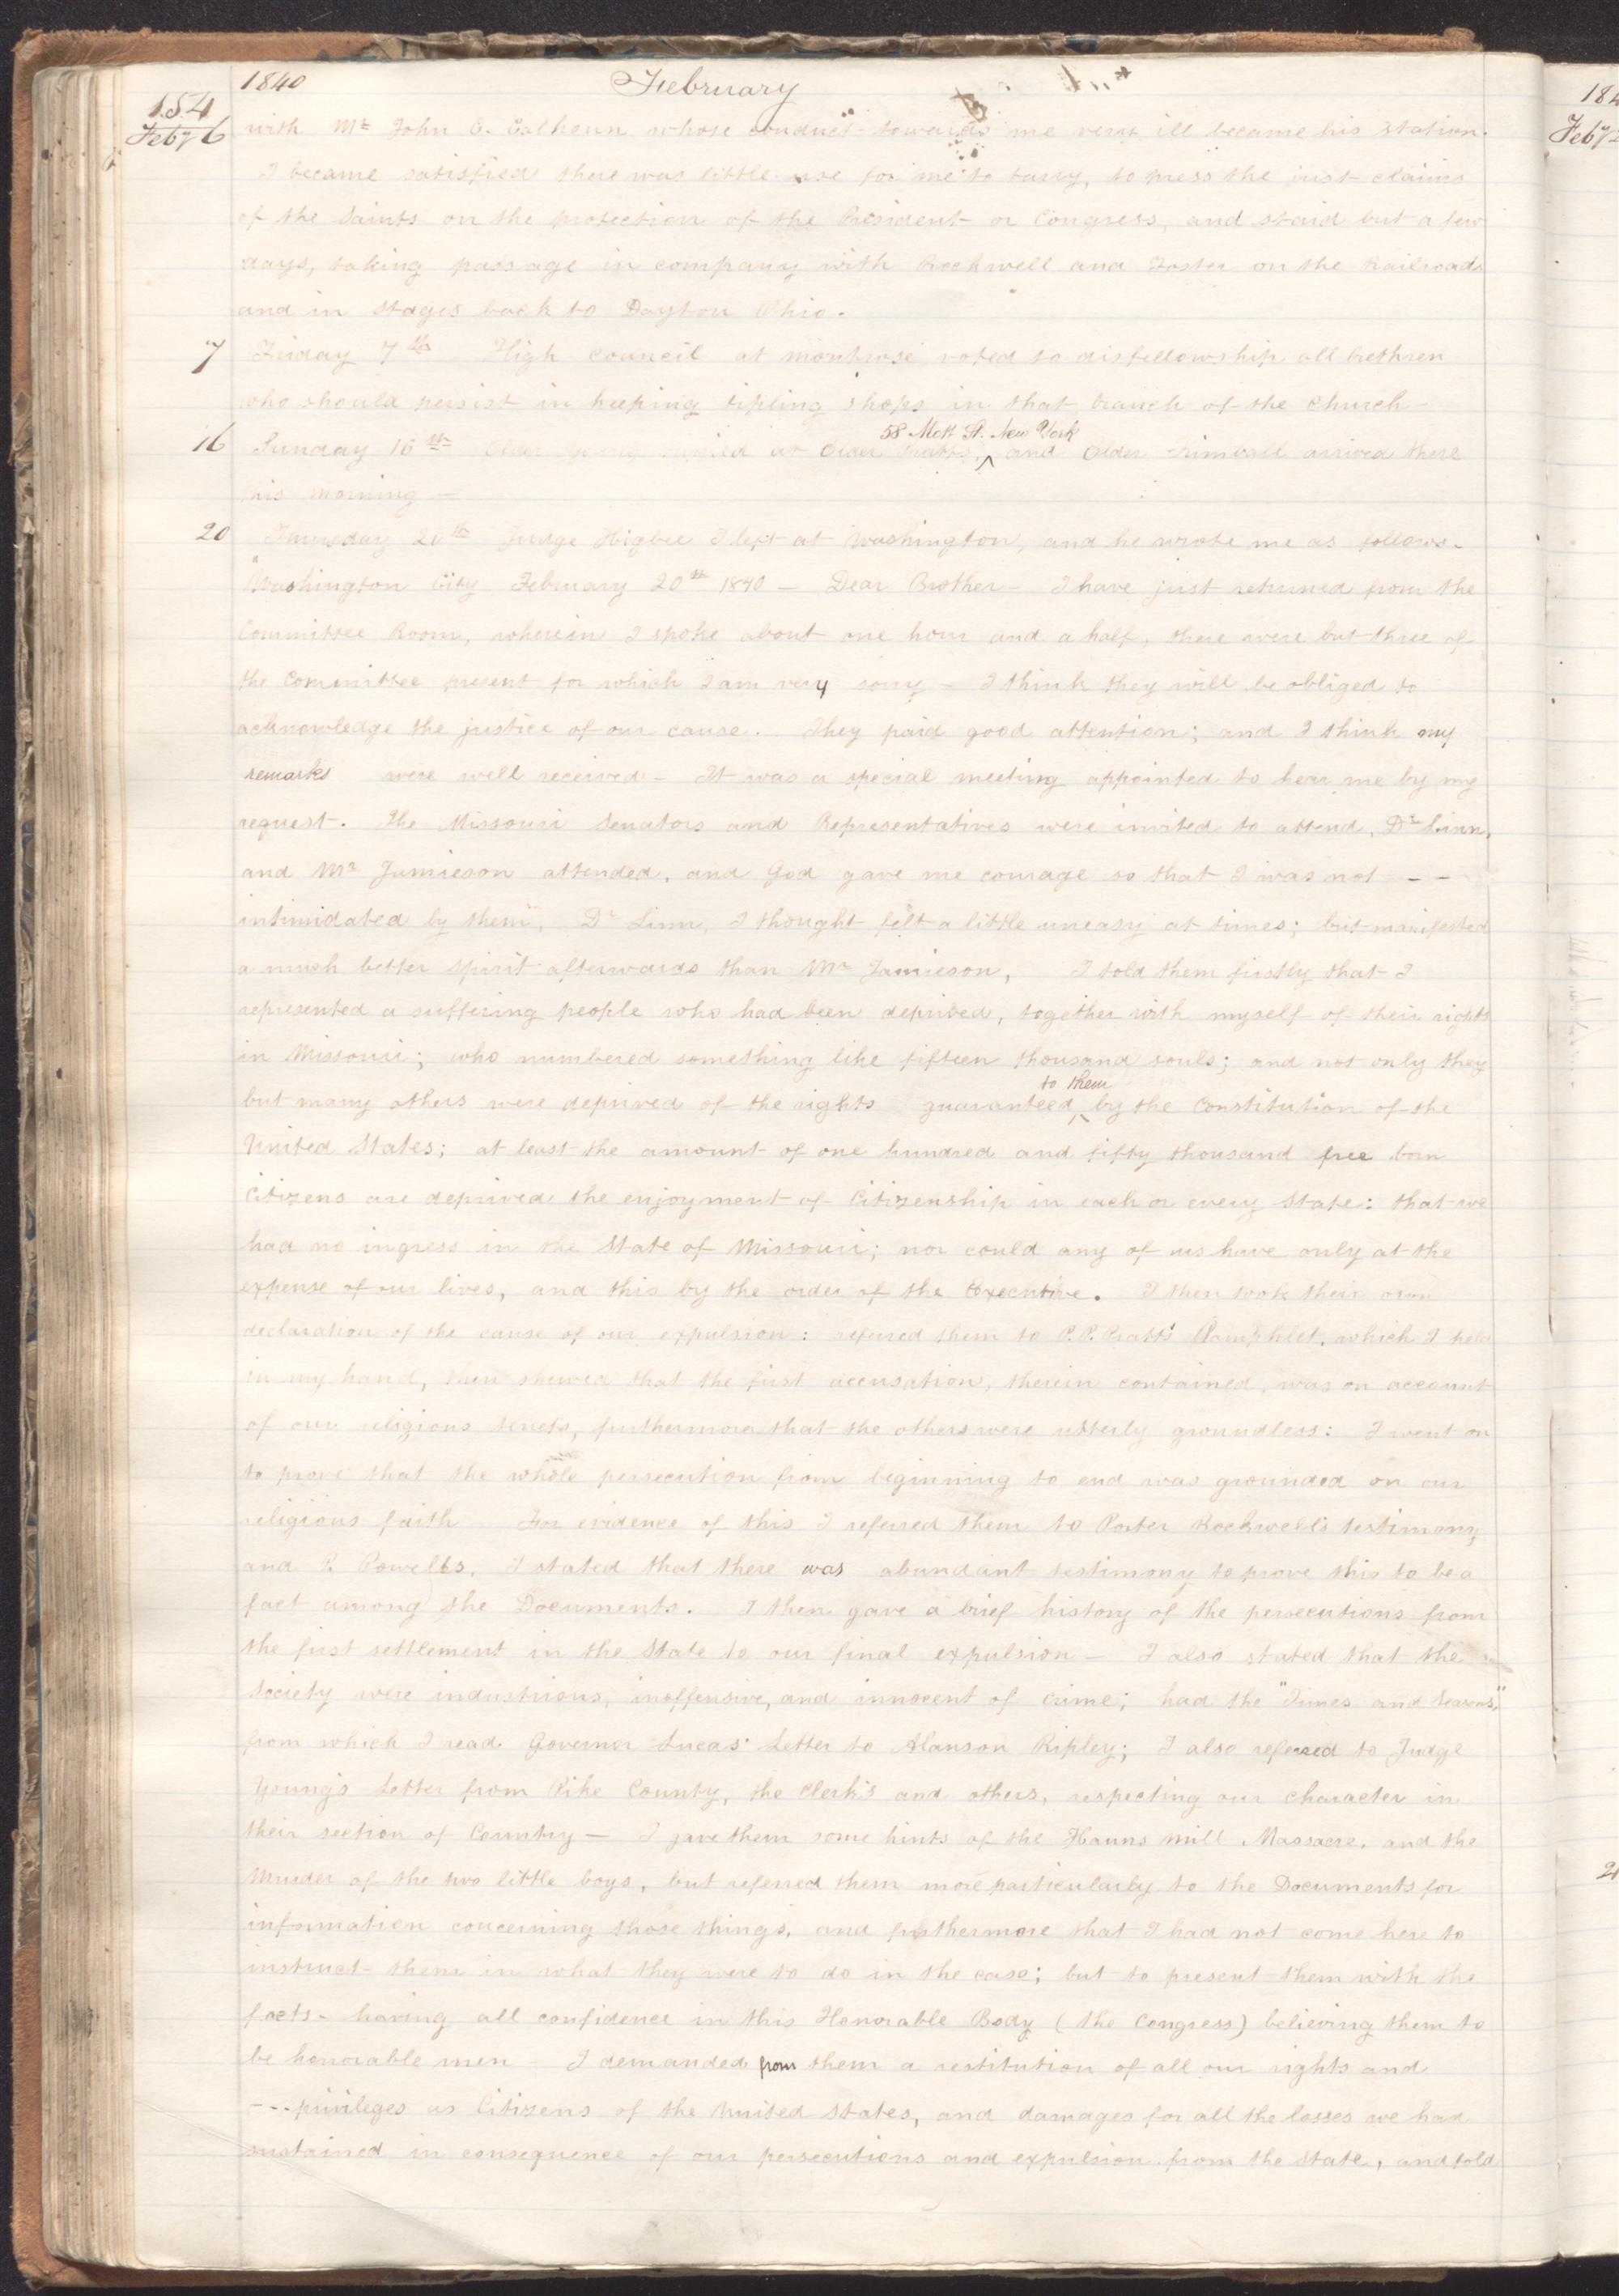 1840 February
154
Feby 6 with Mr John C. Calhoun whose conduct towards me very ill became his station.
I became satisfied there was little use for me to tarry, to press the just claims
of the Saints on the protection of the President or Congress, and staid but a few
days, taking passage in company with Rockwell and Foster on the Railroads
and in stages back to Dayton Ohio.
7 Friday 7th High council at Montrose voted to disfellowship all brethren
who should persist in keeping tipling shops in that branch of the church -
58 Mott St. New York
16 Sunday 16th Elder Young arrived at Elder Pratts, ^ and Elder Kimball arrived there
this morning -
20 Thursday 20th Judge Higbee I left at Washington, and he wrote me as follows.
"Washington City February 20th 1840 - Dear Brother - I have just returned from the
Committee Room, wherein I spoke about one hour and a half, there were but three of
the Committee present for which I am very sorry - I think they will be obliged to
acknowledge the justice of our cause. They paid good attention; and I think my
remarks were well received - It was a special meeting appointed to hear me by my
request. The Missouri Senators and Representatives were invited to attend, Dr Linn,
and Mr Jamieson attended, and God gave me courage so that I was not - -
intimidated by them, Dr Linn, I thought felt a little uneasy at times; but manifested
a much better spirit afterwards than Mr Jamieson, I told them firstly that I
represented a suffering people who had been deprived, together with myself of their rights
in Missouri; who numbered something like fifteen thousand souls; and not only they
to them
but many others were deprived of the rights guaranteed ^ by the Constitution of the
United States; at least the amount of one hundred and fifty thousand free born
Citizens are deprived the enjoyment of Citizenship in each or every State: that we
had no ingress in the State of Missouri; nor could any of us have only at the
expense of our lives, and this by the order of the Executive. I then took their own
declaration of the cause of our expulsion: refered them to P. P. Pratt's Pamphlet, which I held
in my hand, then shewed that the first accusation, therein contained, was on account
of our religious tenets, furthermore that the others were utterly groundless: I went on
to prove that the whole persecution from beginning to end was grounded on our
religious faith For evidence of this I referred them to Porter Rockwell's testimony,
and P. Powells, I stated that there was abundant testimony to prove this to be a
fact among the Documents. I then gave a brief history of the persecutions from
the first settlement in the State to our final expulsion - I also stated that the
Society were industrious, inoffensive, and innocent of crime; had the "Times and Seasons,"
from which I read Governor Lucas' Letter to Alanson Ripley; I also referred to Judge
Young's Letter from Pike County, the Clerk's and others, respecting our character in
their section of Country - I gave them some hints of the Hauns Mill Massacre, and the
Murder of the two little boys, but referred them more particularly to the Documents for
information concerning those things, and furthermore that I had not come here to
instruct them in what they were to do in the case; but to present them with the
facts - having all confidence in this Honorable Body (the Congress) believing them to
be honorable men I demanded from them a restitution of all our rights and
- - - privileges as Citizens of the United States, and damages for all the losses we had
sustained in consequence of our persecutions and expulsion from the State, and told
184
Feby 2
2